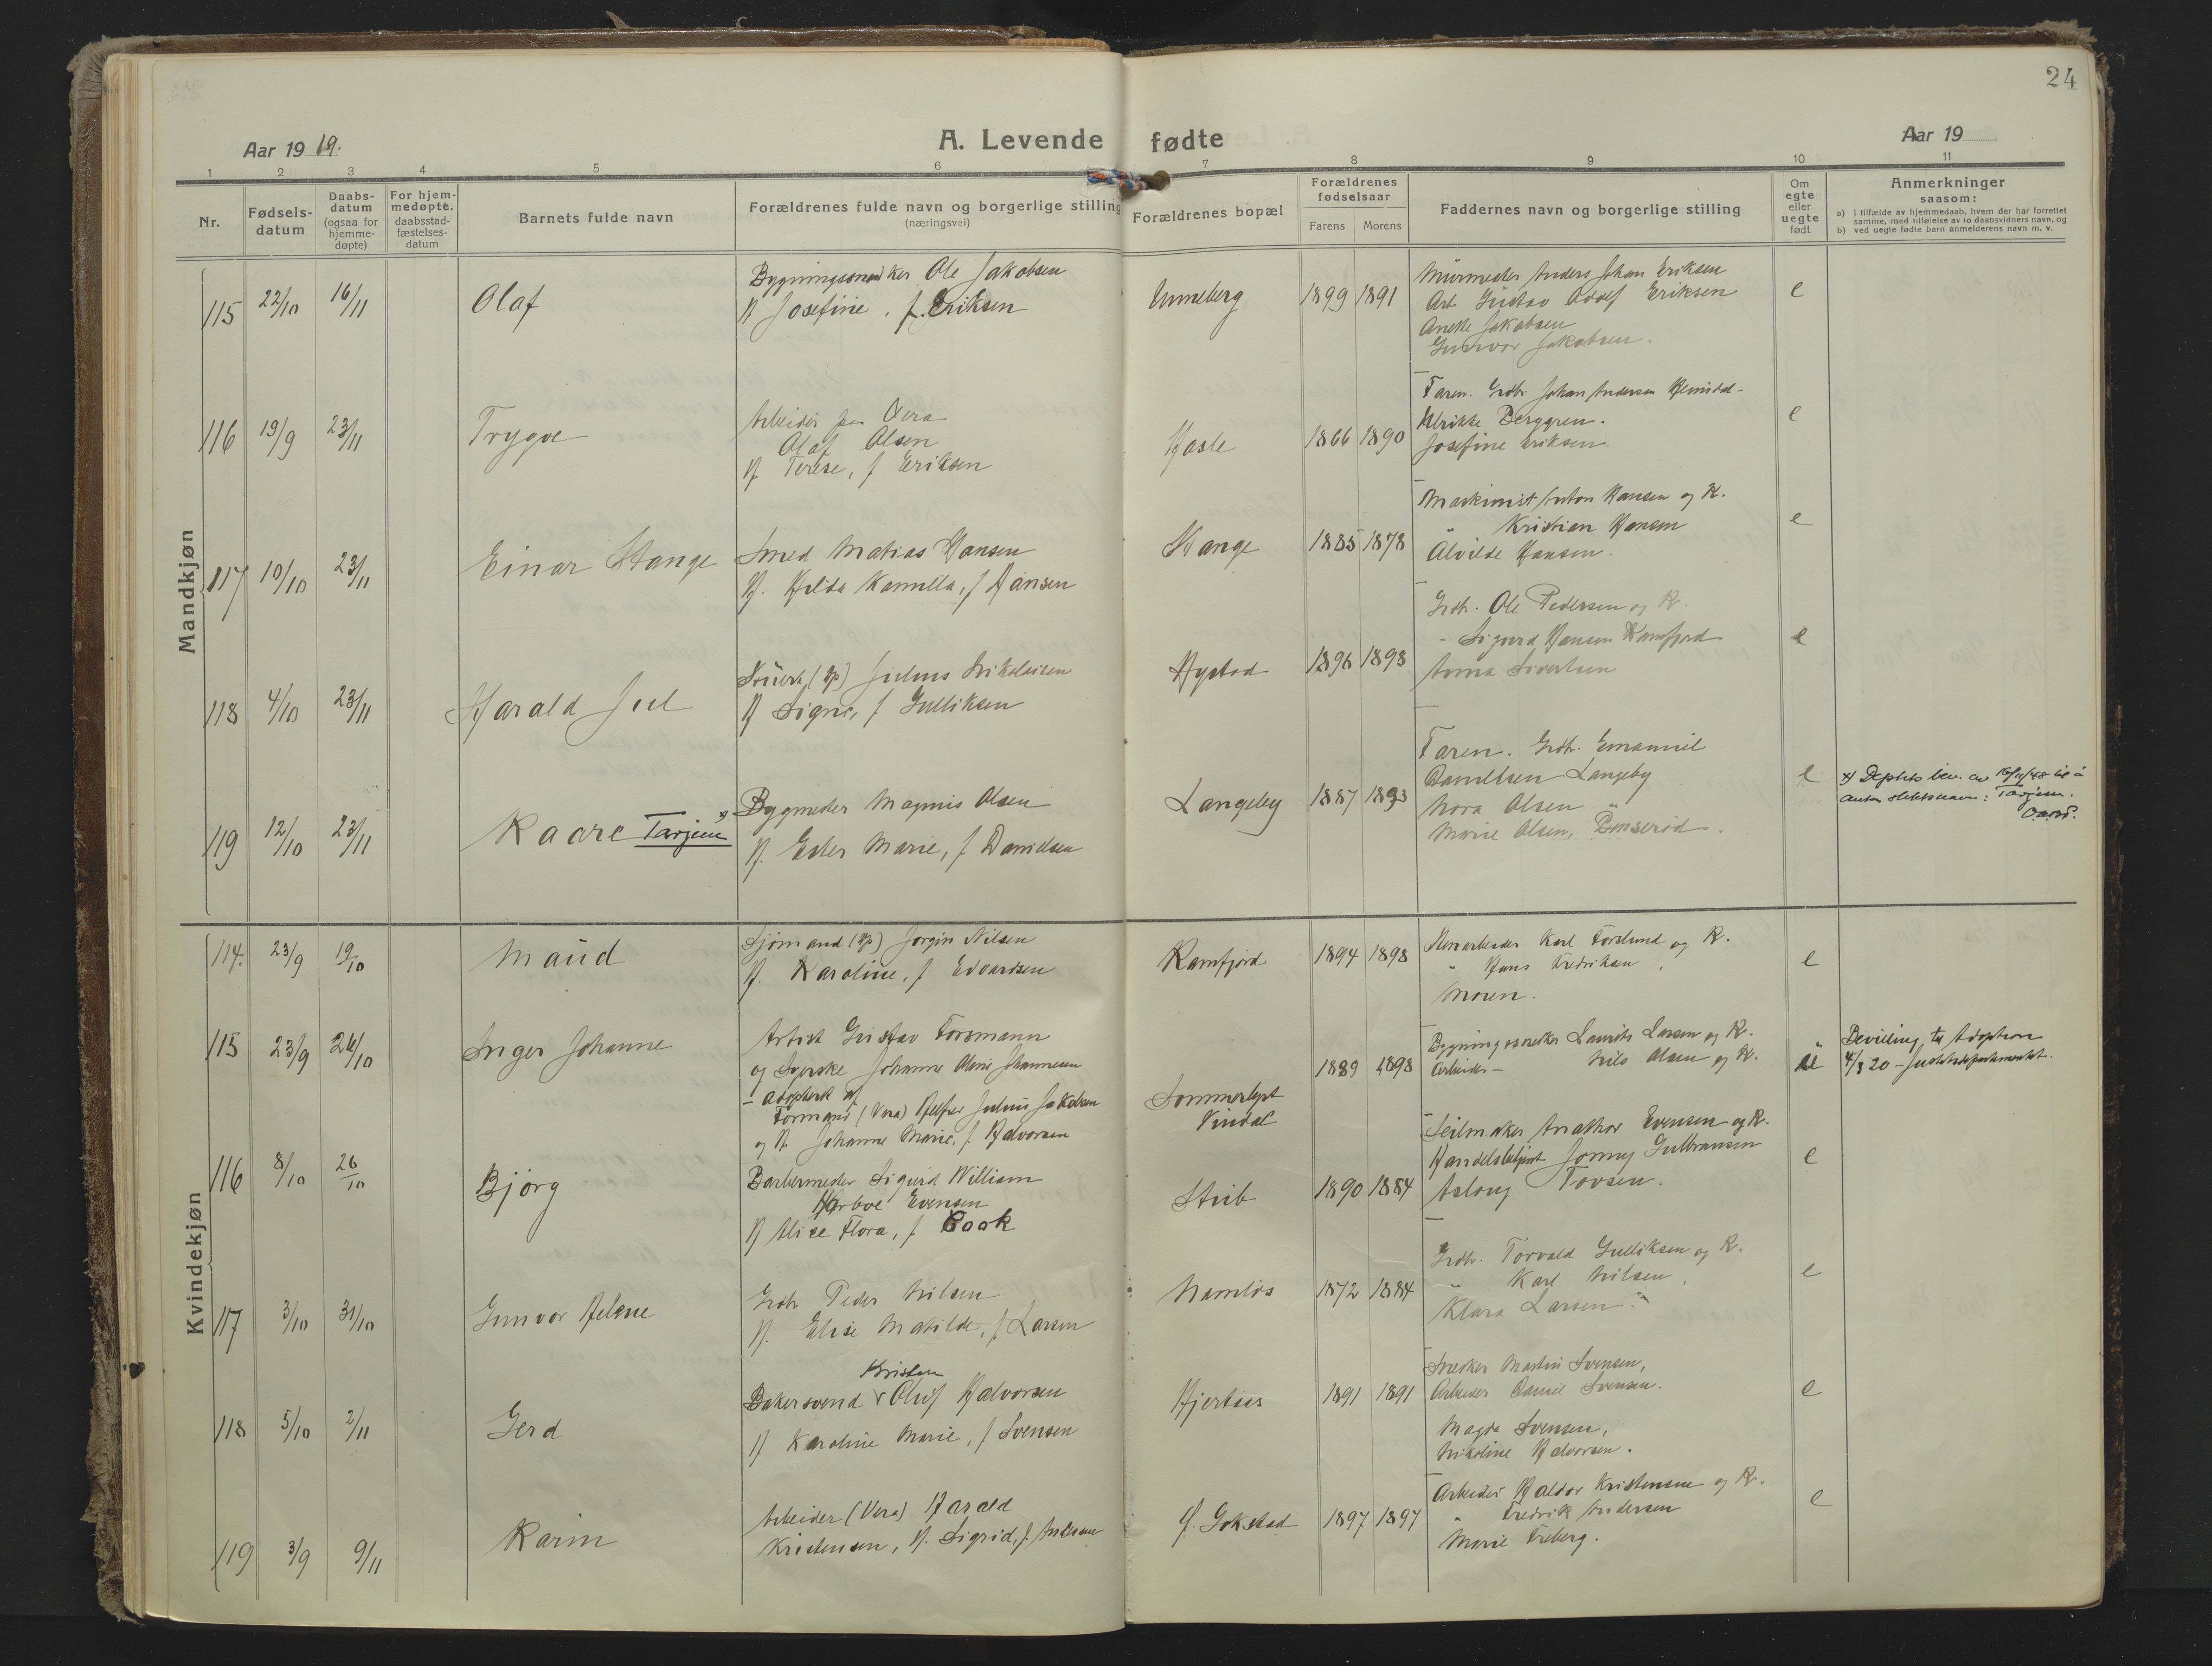 24
Aar 1919.
A. Levende fødte
Aar 19
1 2 3 4 5 6 7 8 9 10 11
Nr.
Fødsels-
datum
Daabs-
datum
(ogsaa for
hjemme-
døpte)
For hjem-
medøpte.
daabsstad-
fæstelses-
datum
Barnets fulde navn
Forældrenes fulde navn og borgerlige stilling
(næringsvei)
Forældrenes bopæl
Forældrenes
fødselsaar
Farens Morens
Faddernes navn og borgerlige stilling
Om
egte
eller
uegte
født
Anmerkninger
saasom:
a) i tilfælde av hjemmedaab, hvem der har forrettet
samme, med tilføielse av to daabsvidners navn, og
b) ved uegte fødte barn anmelderens navn m. v.
Mandkjøn
115 22/10 16/11 Olaf
Ole Jakobsen
H Josefine, f. Eriksen
Unneberg 1899 1891
Murmester Anders Johan Eriksen
Arb. Gustav Adolf Eriksen
Anette Jakobsen
Gunvor Jakobsen.
e
116 19/9 23/11 Trygve
Arbeider paa Vera
Olaf Olsen
H. Terese, f Eriksen
Hasle 1866 1890
Faren. Grdbr. Johan Andersen
Ulrikke Berggren.
Josefine Eriksen.
e
117 10/10 23/11 Einar Stange
Smed Matias Hansen
H. Hilda Kamilla, f Hansen
Stange 1885 1878
Maskinist Anton Hansen og K.
" Kristian Hansen
Alvilde Hansen.
e
118 4/10 23/11 Harald Jul
Julius Nikolaisen
H Signe, f Gulliksen
Nystad 1896 1898
Grdbr. Ole Pedersen og K.
- Sigurd Hansen Kamfjord
Anna Sivertsen
e
119 12/10 23/11 Kaare Tarjem x)
Bygmester Magnus Olsen
H. Ester Marie, f Danielsen
Langeby 1887 1893
Faren. Grdbr. Emanuel
Danielsen Langeby
Nora Olsen "
Marie Olsen, Bonserød.
e
x) Deptets bev. av 16/11/48 til å
anta slektsnavn: Tarjem.
Kvindekjøn
114. 23/9 19/10 Maud
Sjømand (Hp) Jørgin Nilsen
H. Karoline, f Edvardsen
Kamfjord 1894 1898
Karl Forslund og K.
" Hans Fredriksen "
Moren.
e
115 23/9 26/10 Inger Johanne
Artist Gustav Forsmann
og Syerske Johanne Oline Johannesen
- adopteret af
Formand (Vera) Julius Jakobsen
og H. Johanne Marie, f. Halvorsen
Sommerlyst
Vindal
1889 1898
Bygningssnekker Laurits Larsen og K.
Arbeider - Nils Olsen og K.
Bevilling til Adoption
4/3 20 - Justitsdepartementet.
116 8/10 26/10 Bjørg
Barbermester Sigurd William
Harboe Evensen
H Alice Flora, f. Cook
Stub 1890 1884
Seilmaker Anathor Evensen og K.
Handelsbetjent Jonny Gulbransen
Aslaug Tovsen.
e
117 3/10 31/10 Gunvor Helene
Grdbr Peder Nilsen
H. Elise Matilde, f Larsen
Namløs 1872 1884
Grdbr. Torvald Gulliksen og K.
" Karl Nilsen "
Klara Larsen.
e
118 5/10 2/11 Gerd
Kristen
Bakersvend v Oluf Halvorsen
H Karoline Marie, f Svensen
Hjertaas 1891 1891
Snekker Martin Svensen,
Arbeider Daniel Svensen.
Magda Svensen,
Nikoline Halvorsen.
e
119 3/9 9/11 Karin
Arbeider (Vera) Harald
Kristensen, H. Sigrid, f. Andersen
Ø. Gokstad 1897 1897
Arbeider Haldor Kristensen og K.
" Fredrik Andersen
Marie Freberg.
e